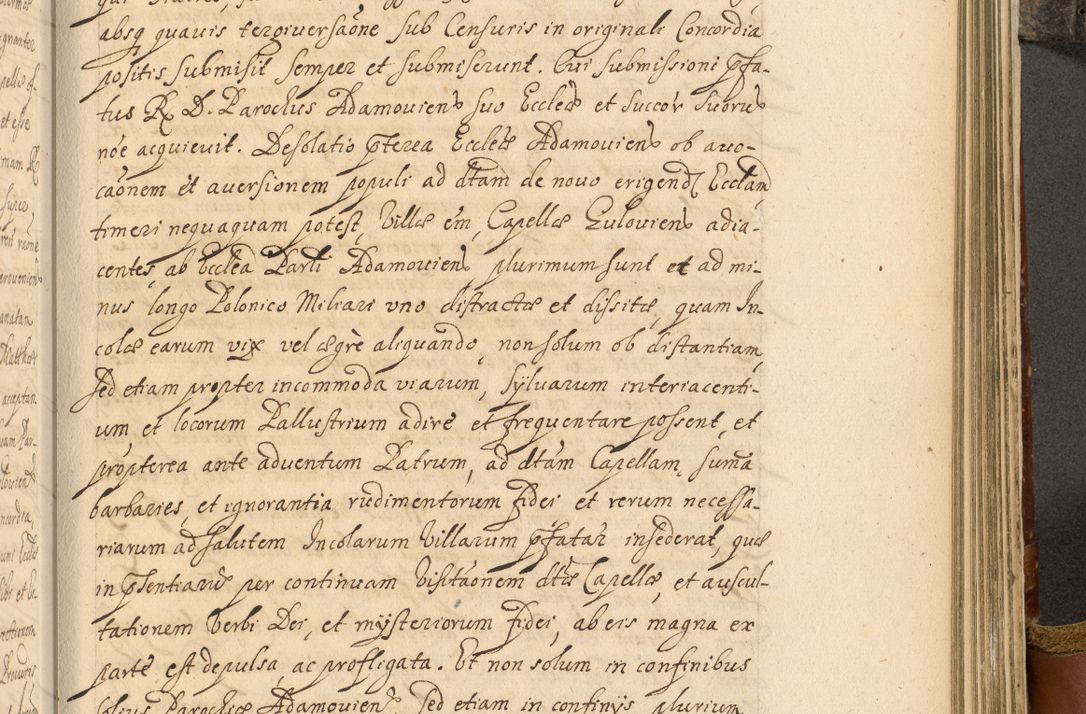 absq quauis tergiuersaōne sub Censuris in originali Concordia
positis submisit semper et submiserunt. Cui submissioni p̄fa-
tus R. D. Parochus Adamouiens suo Eccleæ et succor suorus
nōe acquieuit. Desolatio p̄terea Eccleæ Adamouiens ob auo-
caōnem et auersionem populi ad dtam de nouo erigend Ecclam
timeri nequaquam potest, Villæ em̄, Capellæ Gulouiens adia-
centes ab Ecclea Parli Adamouiens plurimum sunt et ad mi-
nus longo Polonico Miliari vno distractæ et dissitæ, quam In-
colæ earum vix vel ægrè aliquando, non solum ob distantiam,
sed etiam propter incommoda viarum, sÿluarum interiacenti-
um et locorum Pallustrium adire et frequentare possent, et
propterea ante aduentum Patrum, ad dtam Capellam, suma
barbaries, et ignorantia rudimentorum fidei et rerum necessa-
riarum ad salutem Incolarum Villarum p̄fatar insederat, quæ
in p̄sentiarū per continuam Visitaōnem dtæ Capellæ, et auscul-
tationem Verbi Dei, et mÿsteriorum fidei, ab eis magna ex
parte est depulsa, ac profligata. Et non solum in confinibus
solius Parochiæ Adamouiens, sed etiam in confinÿs plurium